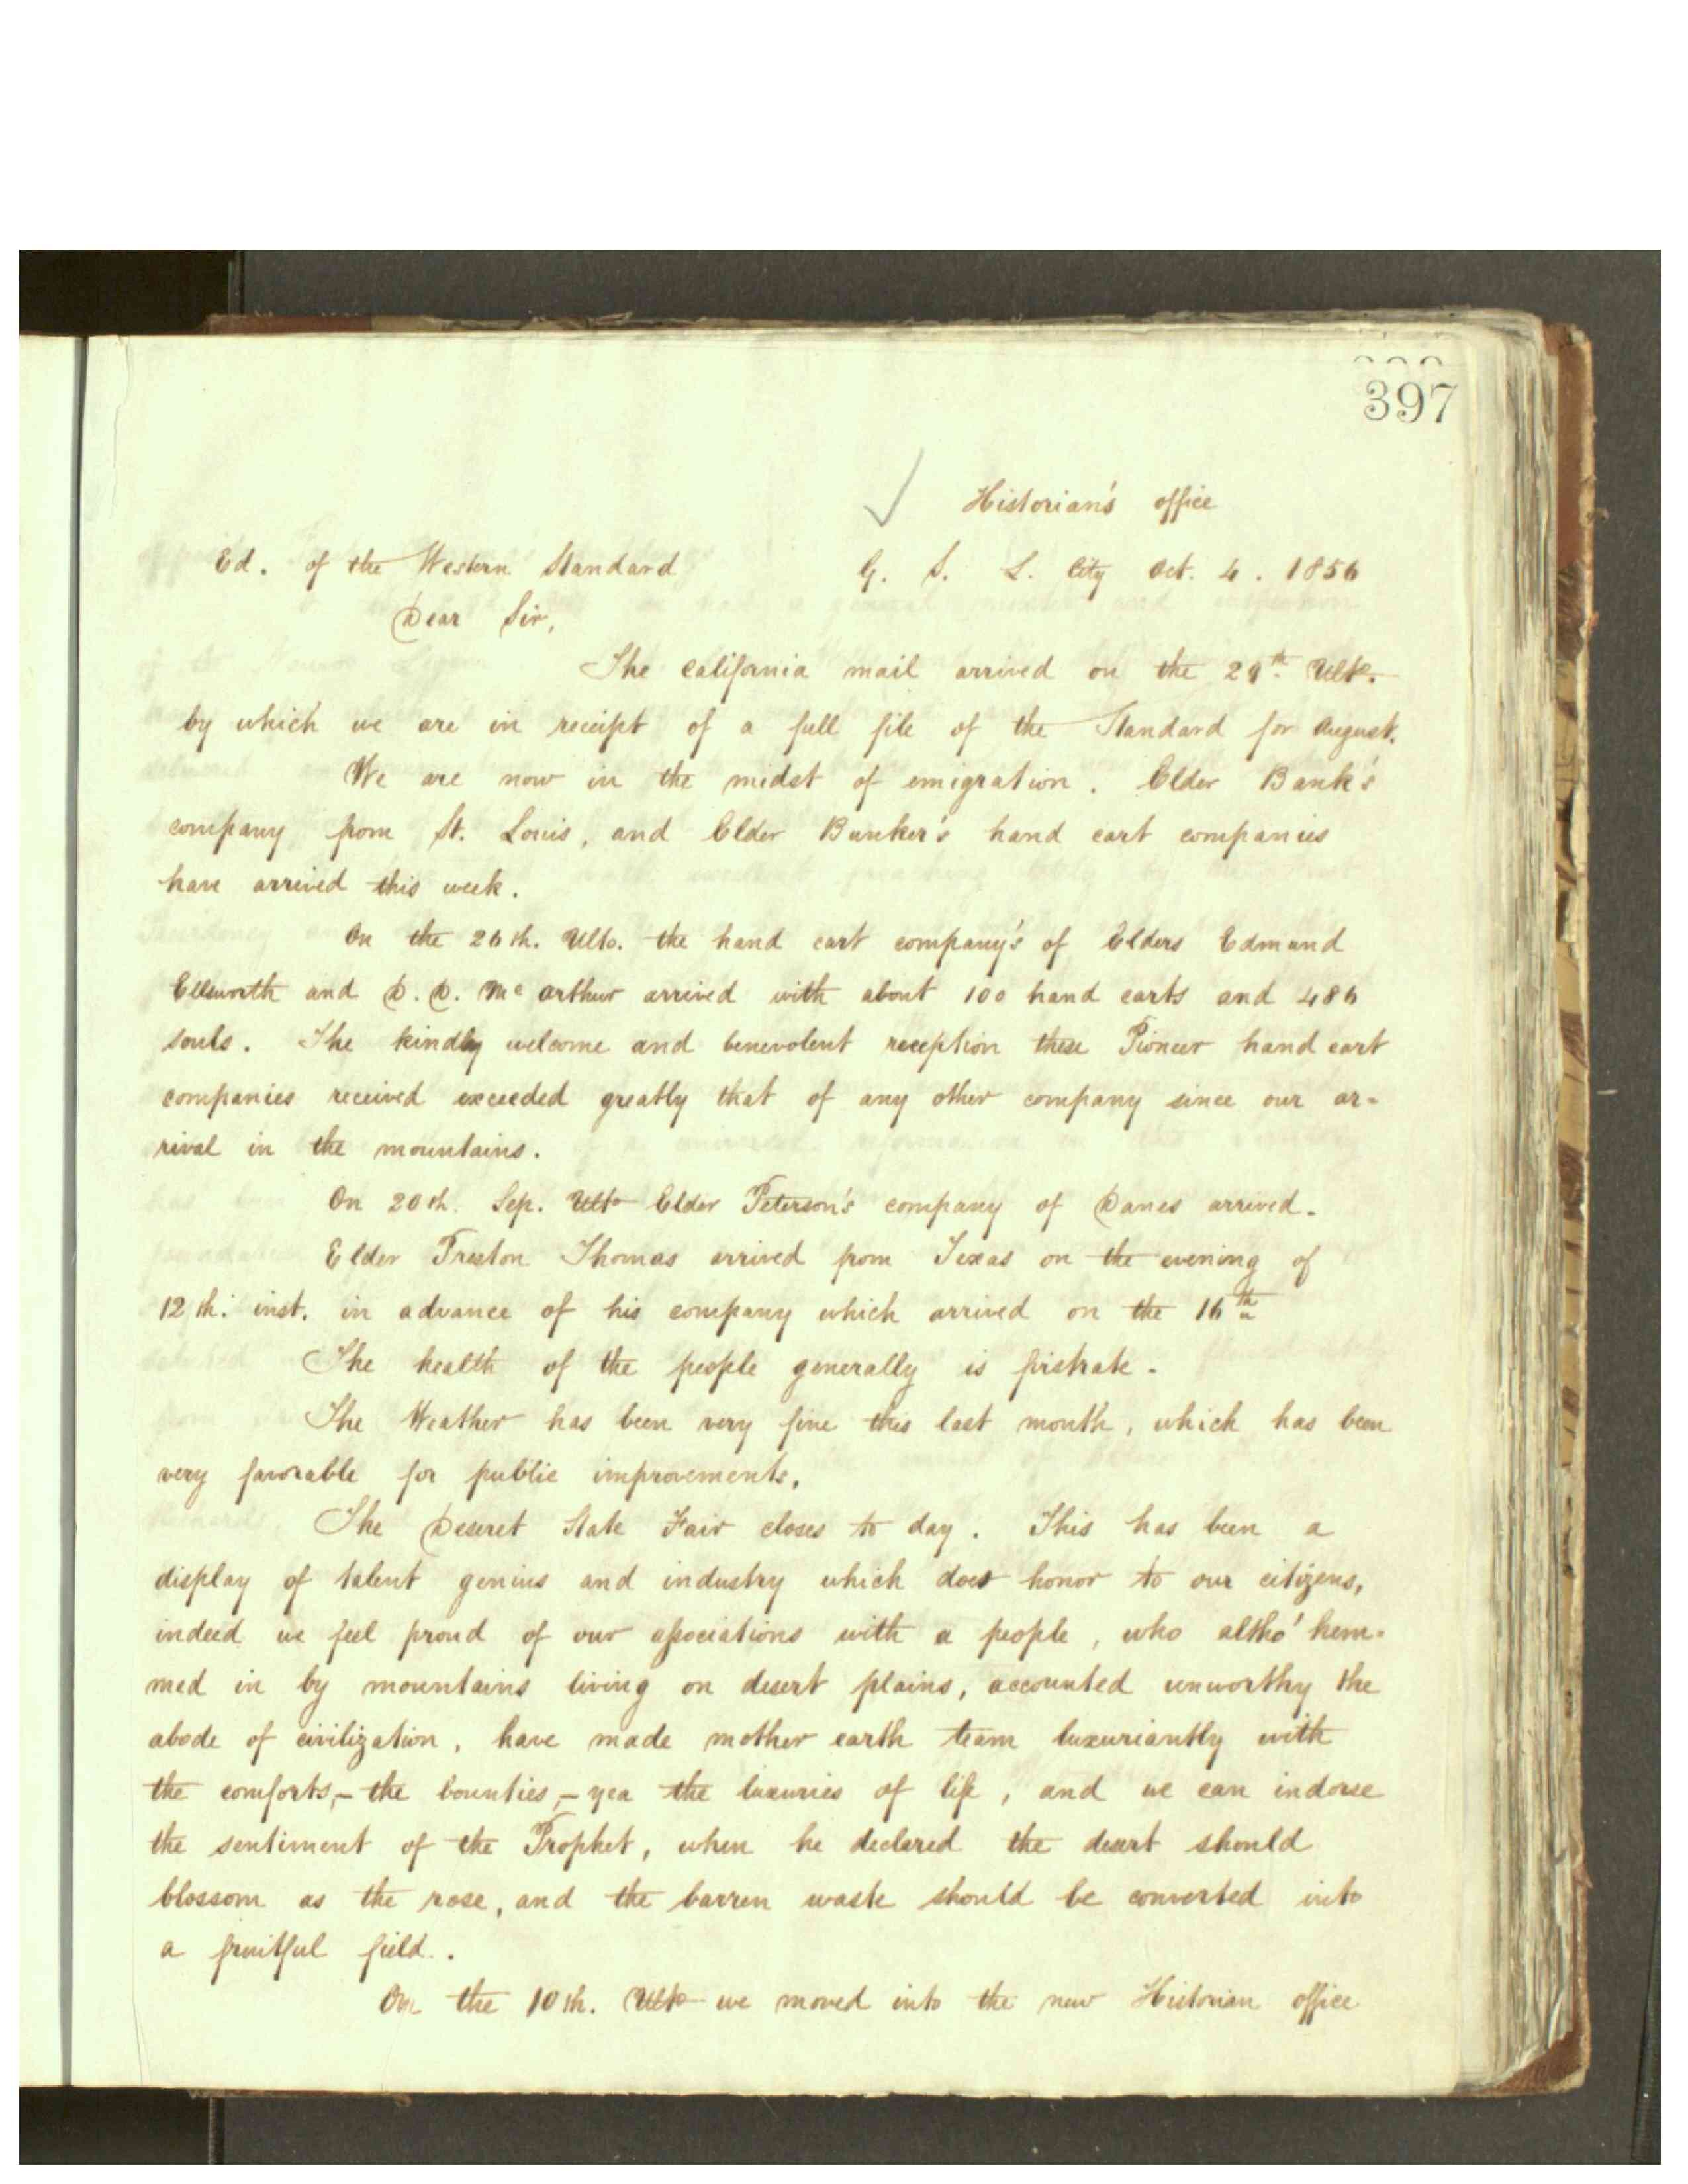 397
Historian's office
Ed. of the Western Standard G. S. L. City Oct. 4. 1856
Dear Sir,
The California mail arrived on the 29th. Ulto.
by which we are in receipt of a full file of the Standard for August.
We are now in the midst of emigration. Elder Bank's
company from St. Louis, and Elder Bunker's hand cart companies
have arrived this week.
On the 26th. Ulto. the hand cart company's of Elders Edmund
Ellsworth and D. D. Mc arthur arrived with about 100 hand carts and 486
souls. The kindly welcome and benevolent reception these Pioneer hand cart
companies received exceeded greatly that of any other company since our ar-
rival in the mountains.
On 20th. Sep. Ulto Elder Peterson's company of Danes arrived.
Elder Preston Thomas arrived from Texas on the evening of
12th. inst. in advance of his company which arrived on the 16th
The health of the people generally is firstrate.
The Weather has been very fine this last month, which has been
very favorable for public improvements.
The Deseret State Fair closes to day. This has been a
display of talent genius and industry which does honor to our citizens,
indeed we feel proud of our associations with a people, who altho' hem-
med in by mountains living on desert plains, accounted unworthy the
abode of civilization, have made mother earth team luxuriantly with
the comforts,- the bounties,- yea the luxuries of life, and we can indorse
the sentiment of the Prophet, when he declared the desert should
blossom as the rose, and the barren waste should be converted into
a fruitful field.
On the 10th. Ulto we moved into the new Historian office